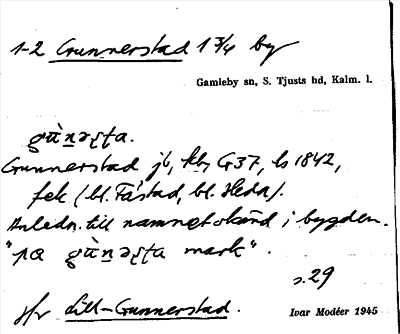 1-2 Gunnerstad 1 3/4 by
Gamleby sn, S. Tjusts hd, Kalm. l.
Gunnerstad jb, kb, G37, ls 1842,
fek (bl. Fåstad, bl. Heda).
Anledn. till namnet okänd i bygden.
"på mark".
s. 29
jfr Lill-Gunnerstad.
Ivar Modéer 1945